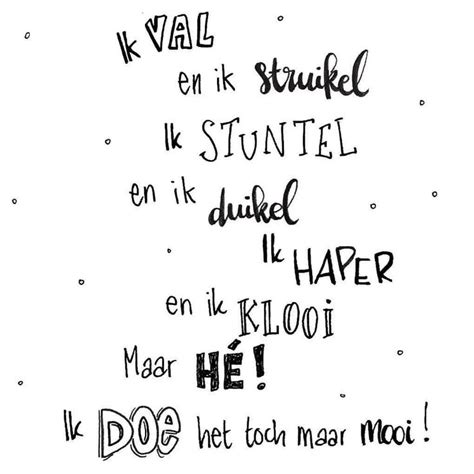 Ik VAL
en ik struikel
Ik STUNTEL
en ik duikel
Ik HAPER
en ik KLOOi
Maar HÉ!
Ik DOe het toch maar mooi!